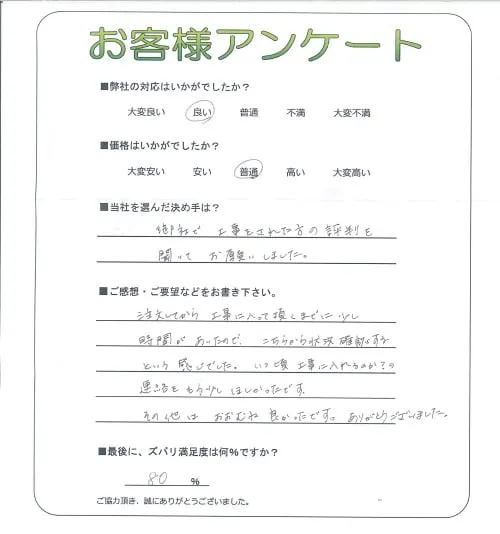 お客様アンケート
■弊社の対応はいかがでしたか？
大変良い 良い 普通 不満 大変不満
■価格はいかがでしたか？
大変安い 安い 普通 高い 大変高い
■当社を選んだ決め手は？
御社で 工事をされた方の 評判を
聞いて お願いしました。
■ご感想・ご要望などをお書き下さい。
注文してから 工事に入って頂くまでに 少し
時間が あったので、こちらから状況確認する
という 感じでした。いつ頃 工事に入れるのか？の
連絡を もう少し ほしかったです
その他は おおむね 良かったです。ありがとうございました。
■最後に、ズバリ満足度は何％ですか？
80 ％
ご協力頂き、誠にありがとうございました。